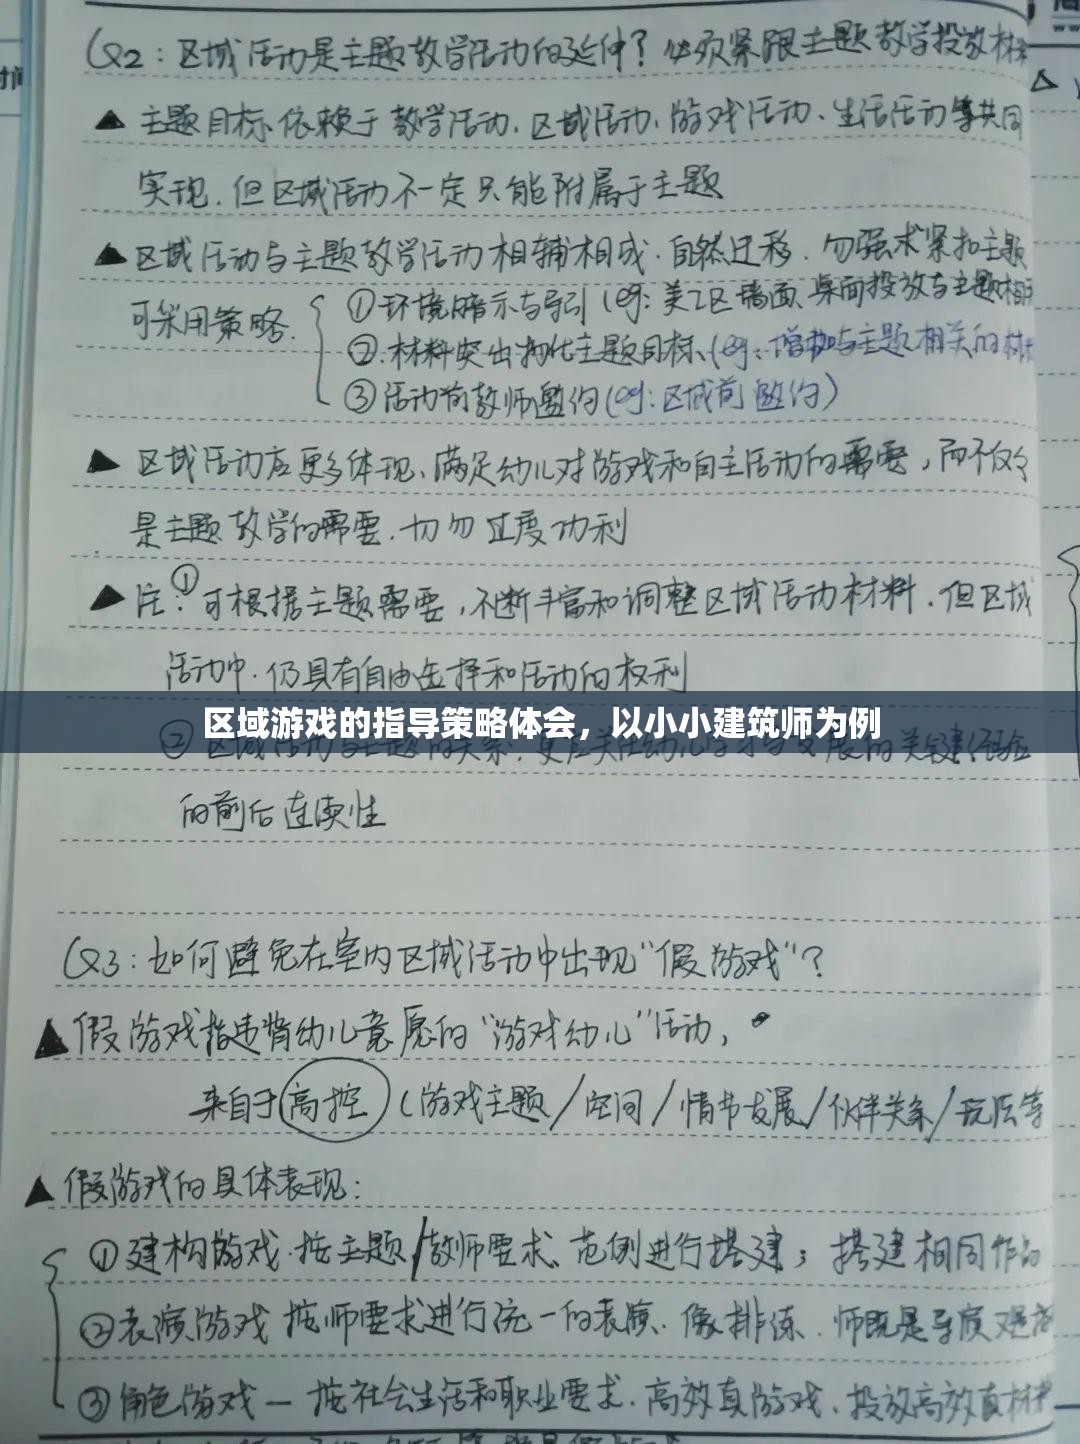 Q2：区域活动是主题教学活动的延伸？必须紧跟主题教学投放材
▲ 主题目标依赖于教学活动、区域活动、游戏活动、生活活动等共同
实现．但区域活动不一定只能附属于主题
▲ 区域活动与主题教学活动相辅相成．自然迁移．勿强求紧扣主题
可采用策略．
①环境暗示与导引（eg：美工区墙面、桌面投放与主题相
②．材料突出物化主题目标、（eg：增加与主题相关的材
③活动前教师邀约（eg：区域前邀约）
▲ 区域活动应更多体现、满足幼儿对游戏和自主活动的需要，而不仅
是主题教学的需要．切勿过度功利
▲ 注：①可根据主题需要，不断丰富和调整区域活动材料．但区域
活动中．仍具有自由选择和活动的权利
区域游戏的指导策略体会，以小小建筑师为例
②区域活动与主题的关系．更应关注幼儿学习与发展的关键经验
的前后连续性
Q3：如何避免在室内区域活动中出现“假游戏”？
▲假游戏指违背幼儿意愿的“游戏幼儿”活动，
来自于高控（游戏主题／空间／情节发展／伙伴关系／玩法等
▲假游戏的具体表现：
①建构游戏．按主题／教师要求、范例进行搭建；搭建相同作品
②表演游戏 按师要求进行统一的表演．像排练．师既是导演又是
③角色游戏－按社会生活和职业要求．高效真游戏．投放高效真材